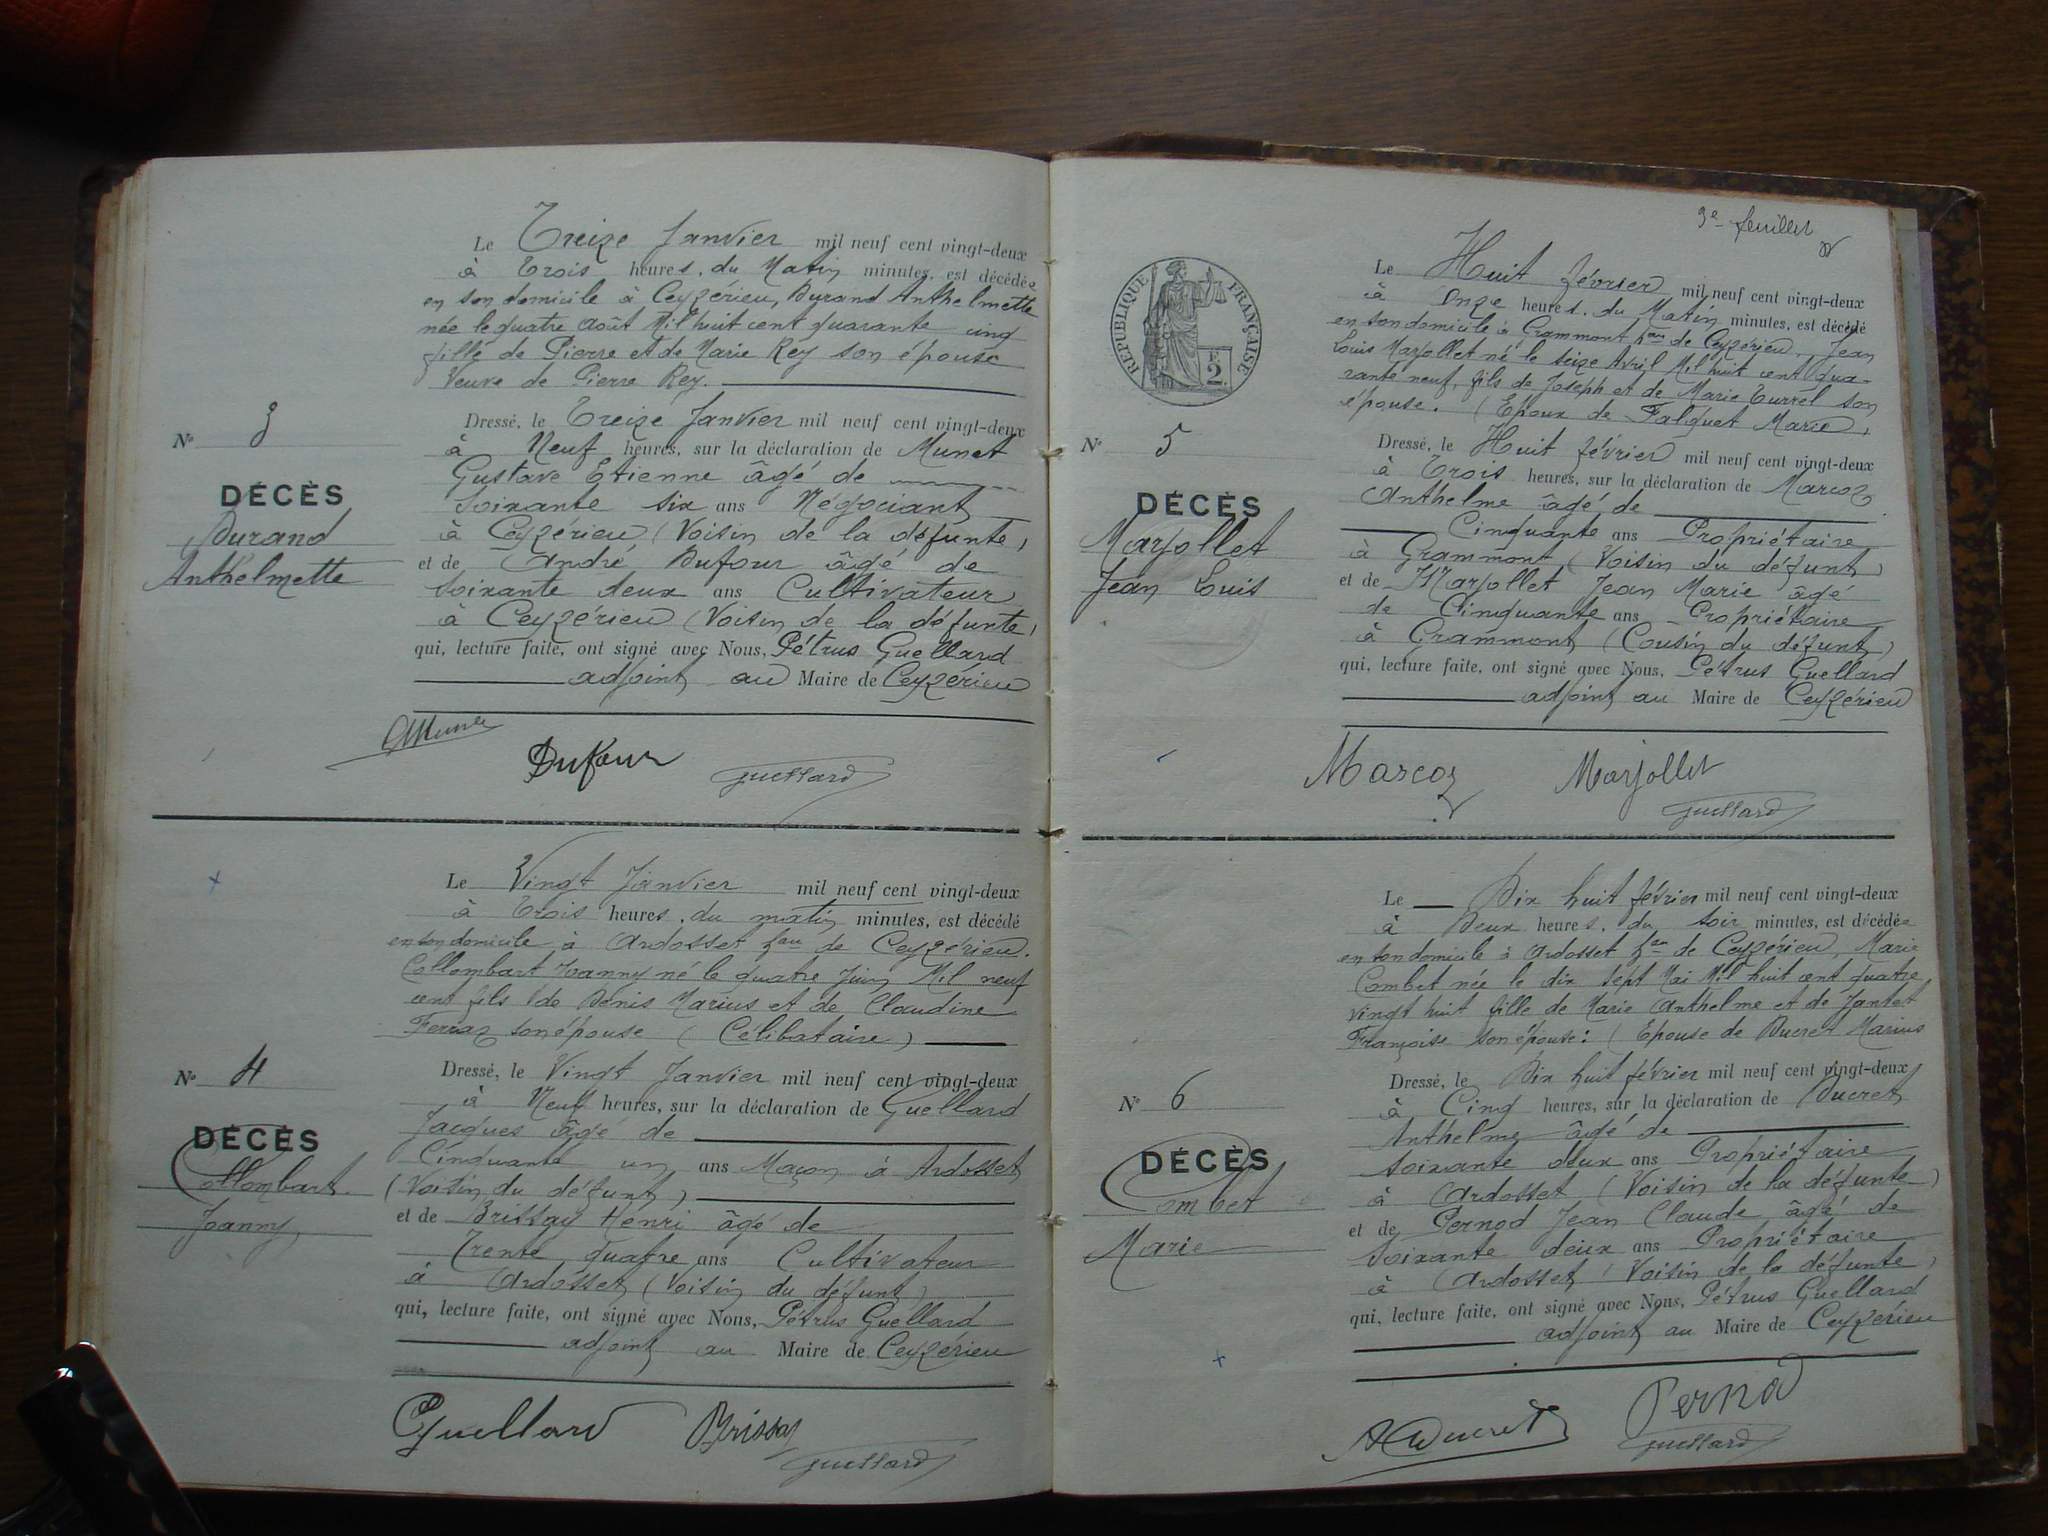 Le Treize Janvier mil neuf cent vingt-deux
à Trois heures. du Matin minutes, est décédée
en son domicile à Ceyzérieu, Durand Anthelmette
née le quatre Août Mil huit cent quarante cinq
fille de Pierre et de Marie Rey son épouse
Veuve de Pierre Rey.
N° 3
DÉCÈS
Durand
Anthelmette
Dressé, le Treize Janvier mil neuf cent vingt-deux
à Neuf heures, sur la déclaration de Munet
Gustave Etienne âgé de
Soixante six ans Négociant
à Ceyzérieu (Voisin de la défunte)
et de André Dufour âgé de
Soixante deux ans Cultivateur
à Ceyzérieu (Voisin de la défunte)
qui, lecture faite, ont signé avec Nous, Pétrus Guellard
adjoint au Maire de Ceyzérieu
Dufour Guellard
Le Vingt Janvier mil neuf cent vingt-deux
à Trois heures. du matin minutes, est décédé
en son domicile à Ardosset hau de Ceyzérieu.
Collombart Joanny né le quatre Juin Mil neuf
cent fils de Denis Marius et de Claudine
Ferraz son épouse (Célibataire)
N° 4
DÉCÈS
Collombart
Joanny
Dressé, le Vingt Janvier mil neuf cent vingt-deux
à Neuf heures, sur la déclaration de Guellard
Jacques âgé de
Cinquante un ans Maçon à Ardosset
(Voisin du défunt)
et de Brissay Henri âgé de
Trente quatre ans Cultivateur
à Ardosset (Voisin du défunt)
qui, lecture faite, ont signé avec Nous, Pétrus Guellard
adjoint au Maire de Ceyzérieu
Guellard Brissay
Guellard
3e feuillet
RÉPUBLIQUE FRANÇAISE
2
Le Huit février mil neuf cent vingt-deux
à Onze heures. du Matin minutes, est décédé
en son domicile à Grammont hau de Ceyzérieu, Jean
Louis Marjollet né le seize Avril Mil huit cent qua-
rante neuf, fils de Joseph et de Marie Turrel son
épouse. (Epoux de Falquet Marie)
N° 5
DÉCÈS
Marjollet
Jean Louis
Dressé, le Huit février mil neuf cent vingt-deux
à Trois heures, sur la déclaration de Marcoz
Anthelme âgé de
Cinquante ans Propriétaire
à Grammont (Voisin du défunt)
et de Marjollet Jean Marie âgé
de Cinquante ans Propriétaire
à Grammont (Cousin du défunt)
qui, lecture faite, ont signé avec Nous, Pétrus Guellard
adjoint au Maire de Ceyzérieu
Marcoz Marjollet
Guellard
Le Dix huit février mil neuf cent vingt-deux
à Deux heures. du soir minutes, est décédée
en son domicile à Ardosset hau de Ceyzérieu, Marie
Combet née le dix sept Mai Mil huit cent quatre
vingt huit fille de Marie Anthelme et de Jantet
Françoise son épouse: (Epouse de Ducret Marius
N° 6
DÉCÈS
Combet
Marie
Dressé, le Dix huit février mil neuf cent vingt-deux
à Cinq heures, sur la déclaration de Ducret
Anthelme âgé de
Soixante deux ans Propriétaire
à Ardosset (Voisin de la défunte)
et de Pernod Jean Claude âgé de
Soixante deux ans Propriétaire
à Ardosset (Voisin de la défunte)
qui, lecture faite, ont signé avec Nous, Pétrus Guellard
adjoint au Maire de Ceyzérieu
A Ducret Pernod
Guellard